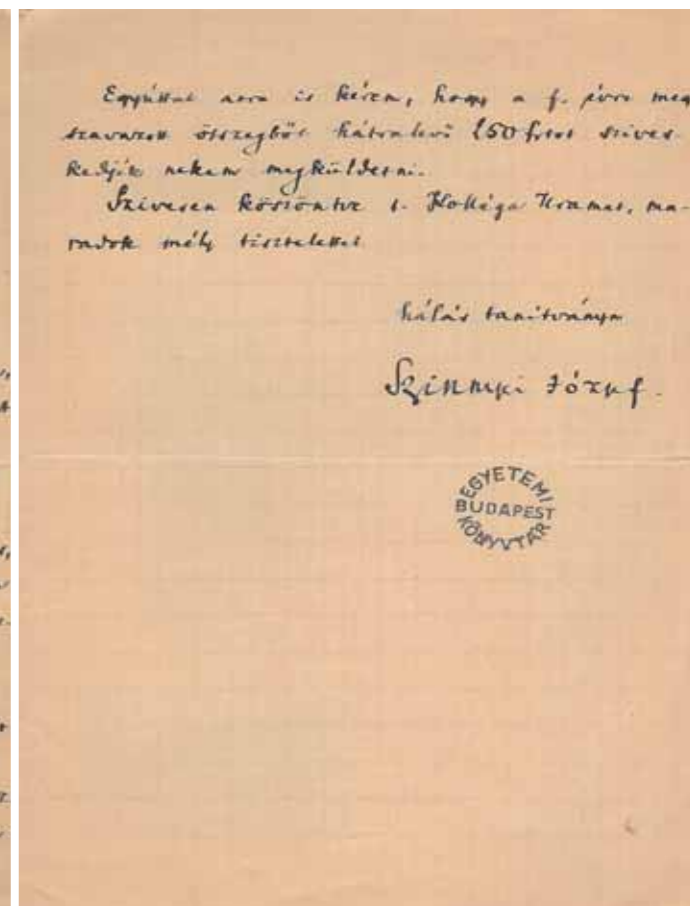 Egyúttal arra is kérem, hogy a f. évre meg
szavazott összegből hátralevő 150 frtot szives
kedjék nekem megküldetni.
Szivesen köszöntve t. Kolléga Uramat, ma-
radok mély tisztelettel
hálás tanitványa
Szinnyei József.
EGYETEMI
BUDAPEST
KÖNYVTÁR